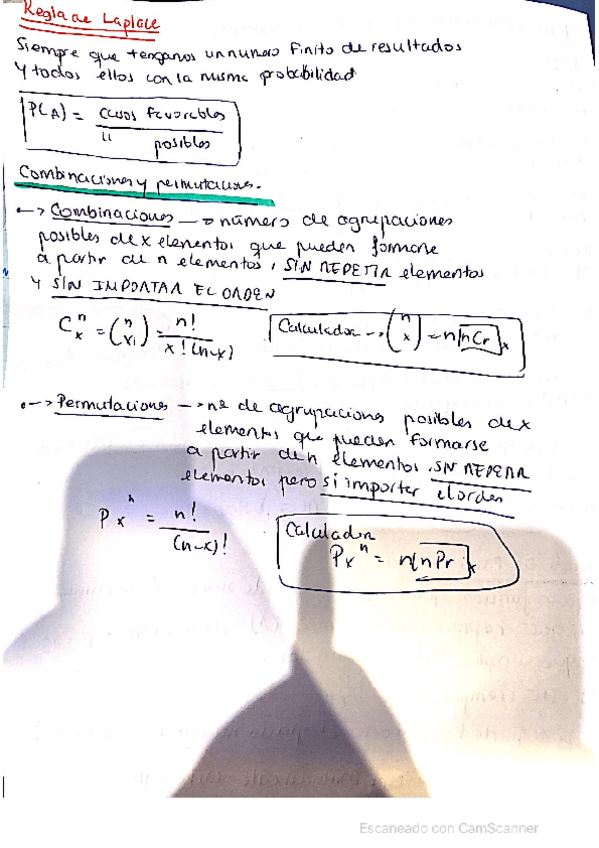 Regla de Laplace
Siempre que tengamos un numero finito de resultados
Y todos ellos con la misma probabilidad
P(A) = casos favorables
" posibles
Combinaciones y permutaciones.
•–> Combinaciones –> número de agrupaciones
posibles de x elementos que pueden formarse
a partir de n elementos, SIN REPETIR elementos
Y SIN IMPORTAR EL ORDEN
Cₓⁿ = (n x) = n! / x!(n-x)
Calculadora –> (n x) = n [nCr] x
•–> Permutaciones –> nº de agrupaciones posibles de x
elementos que pueden formarse
a partir de n elementos, SIN REPETIR
elementos pero si importar el orden
Pₓⁿ = n! / (n-x)!
Calculadora
Pₓⁿ = n [nPr] x
Escaneado con CamScanner